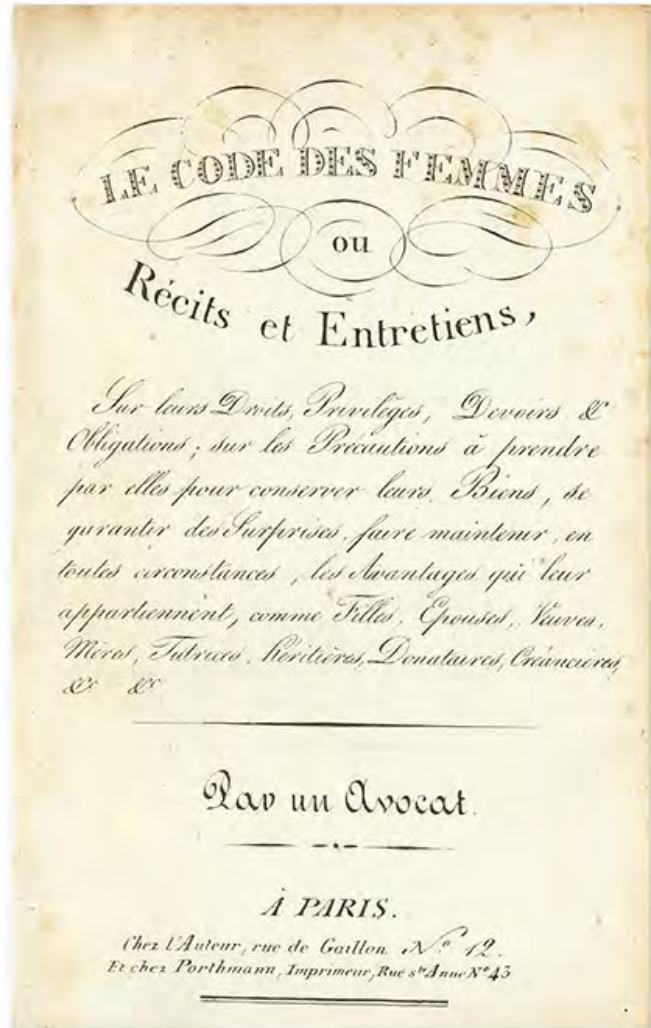 LE CODE DES FEMMES
ou
Récits et Entretiens,
Sur leurs Droits, Privilèges, Devoirs &
Obligations; sur les Précautions à prendre
par elles pour conserver leurs Biens, se
garantir des Surprises, faire maintenir, en
toutes circonstances, les Avantages qui leur
appartiennent, comme Filles, Epouses, Veuves,
Mères, Tutrices, héritières, Donataires, Créancières,
&c &c
Par un Avocat.
À PARIS.
Chez l'Auteur, rue de Gaillon N.º 12.
Et chez Porthmann, Imprimeur, Rue s.te Anne N.º 43